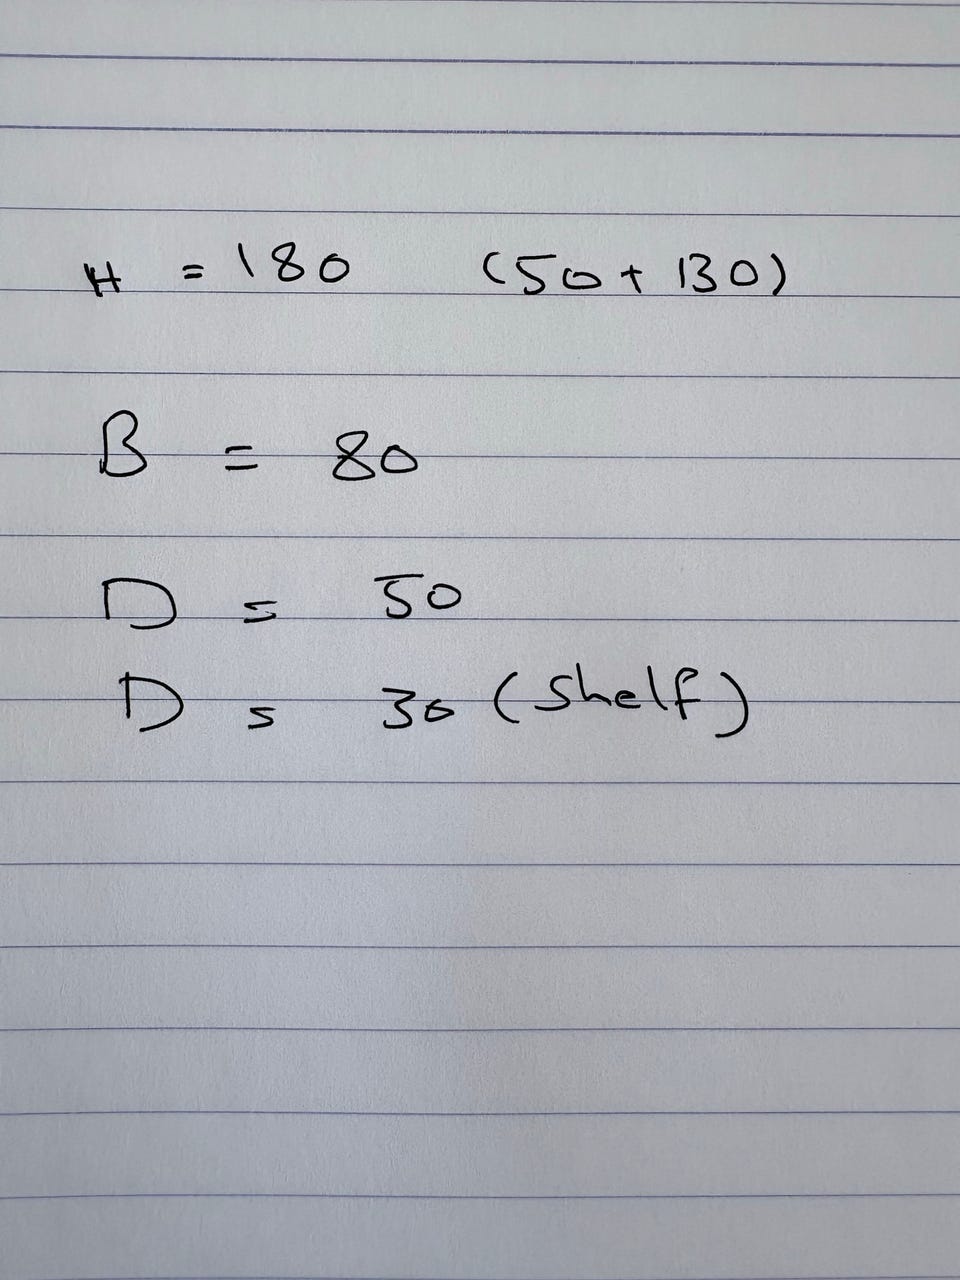 H = 180 (50 + 130)
B = 80
D = 50
D = 30 (Shelf)